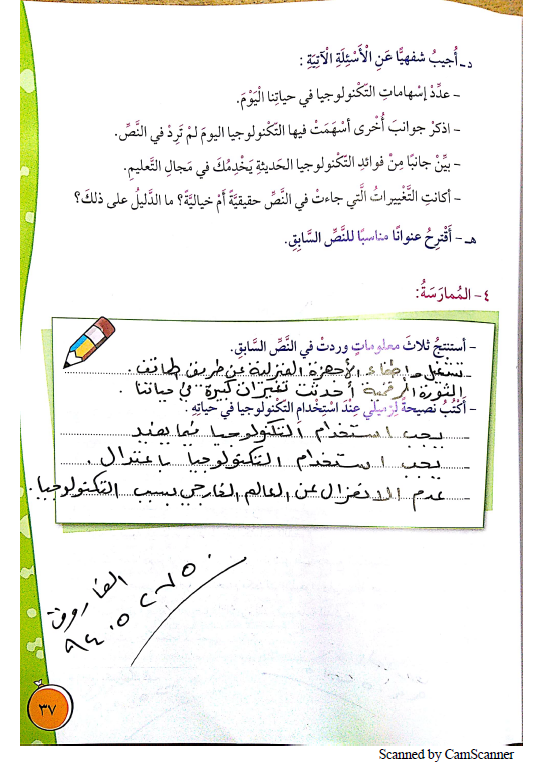 د - أُجيبُ شفهيًّا عَنِ الْأَسْئِلَةِ الْآتِيَةِ :
- عدِّدْ إسْهاماتِ التّكْنولوجيا في حياتِنا الْيَوْمَ.
- اذكرْ جوانبَ أُخْرى أسْهَمَتْ فيها التّكْنولوجيا اليومَ لمْ تَرِدْ في النَّصِّ.
- بيِّنْ جانبًا مِنْ فوائدِ التّكْنولوجيا الحَديثةِ يَخْدِمُكَ في مَجالِ التَّعليمِ.
- أكانتِ التَّغْييراتُ الَّتي جاءتْ في النَّصِّ حقيقيَّةً أَمْ خياليَّةً؟ ما الدَّليلُ على ذلكَ؟
هـ - أَقْترِحُ عنوانًا مناسبًا للنَّصِّ السَّابِقِ.
٤ - المُمارَسَةُ:
- أستنتِجُ ثلاثَ معلوماتٍ وردتْ في النَّصِّ السَّابقِ.
تشغيل و اطفاء الأجهزة المنزلية عن طريق هاتف.
الثورة الرقمية أحدثت تغيرات كبيرة في حياتنا .
- أَكْتُبُ نصيحةً لِزميلي عِنْدَ اسْتِخْدامِ التّكنولوجيا في حياتِهِ.
يجب استخدام التكنولوجيا فيما يفيد
يجب استخدام التكنولوجيا باعتدال .
عدم الانعزال عن العالم الخارجي بسبب التكنولوجيا.
الفاروق
٣٧
Scanned by CamScanner